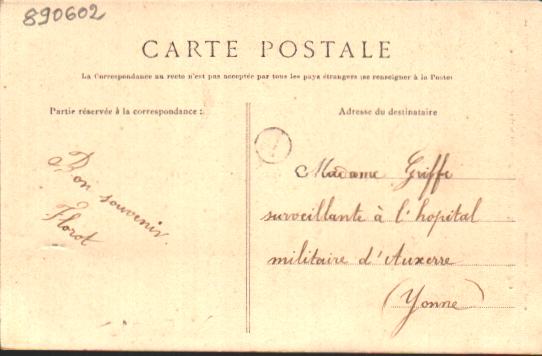 890602
CARTE POSTALE
La Correspondance au recto n'est pas acceptée par tous les pays étrangers (se renseigner à la Poste)
Partie réservée à la correspondance :
Adresse du destinataire
Bon souvenir.
Florot
Madame Griffe
surveillante à l'hopital
militaire d'Auxerre
(Yonne)